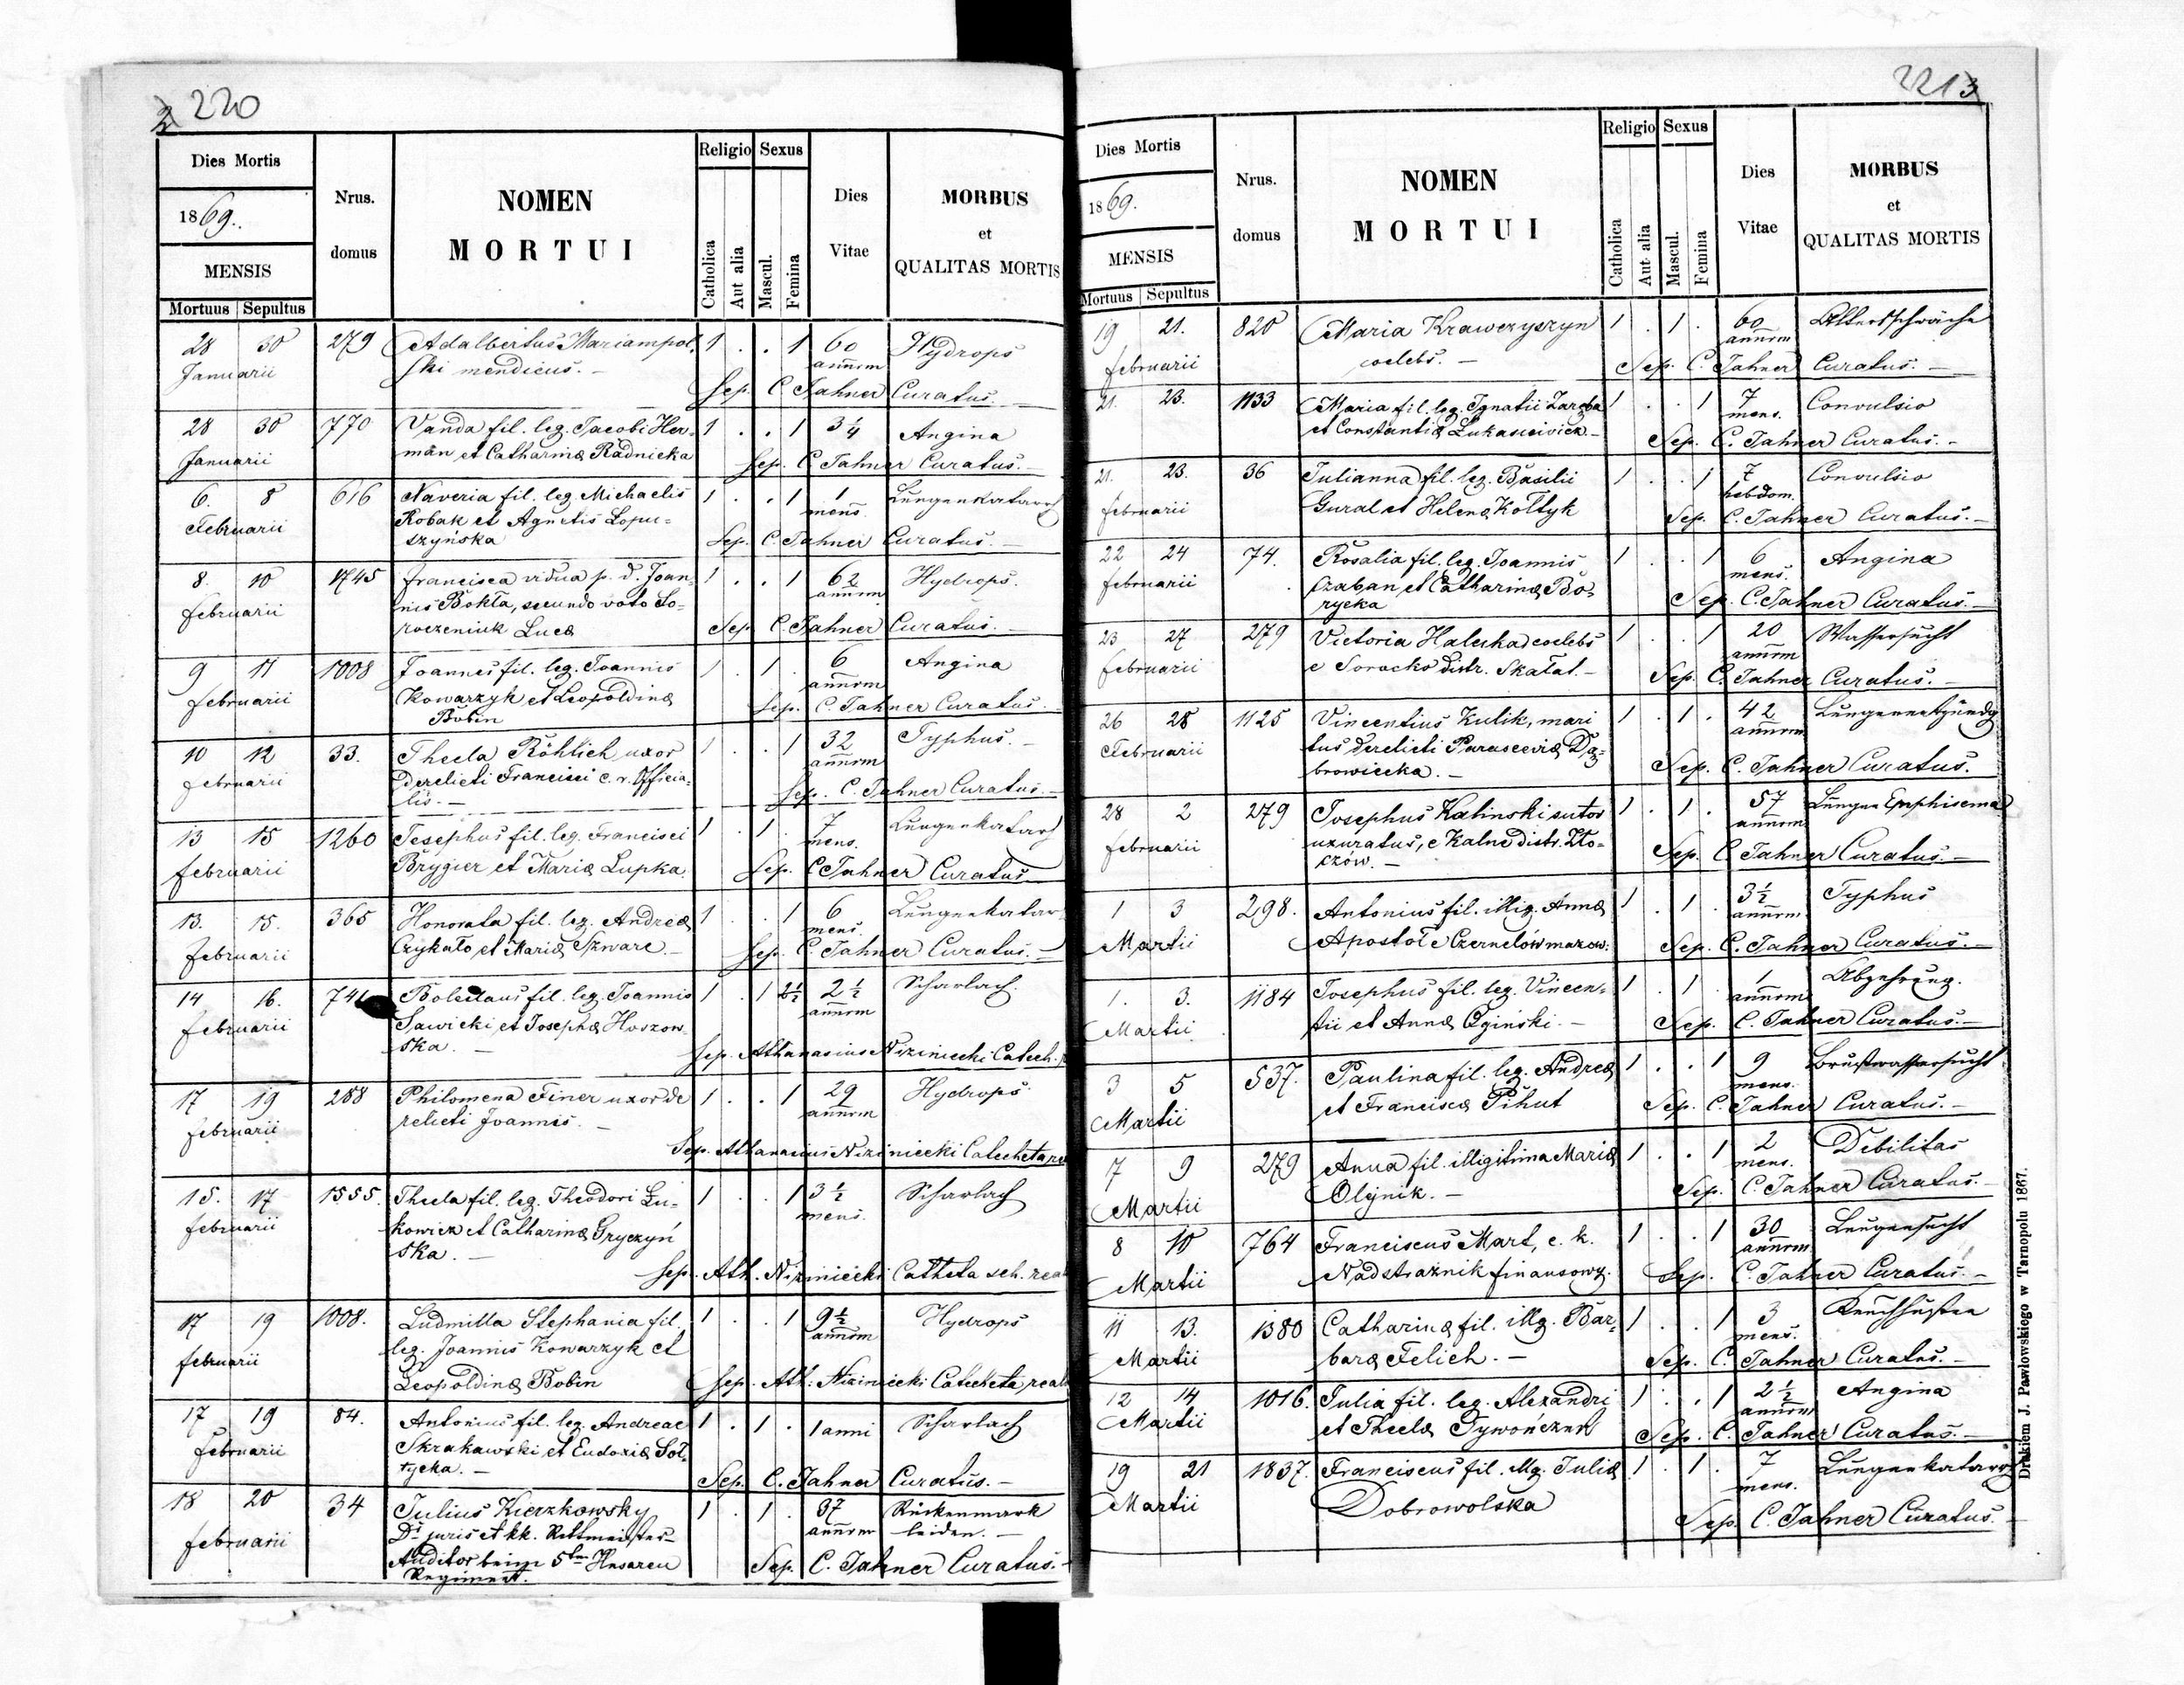 220
Dies Mortis
1869.
MENSIS
Mortuus Sepultus
Nrus.
domus
NOMEN
MORTUI
Religio Sexus
Catholica
Aut alia
Mascul.
Femina
Dies
Vitae
MORBUS
et
QUALITAS MORTIS
28 30 279 Adalbertus Mariampol- 1 . . 1 60 Hydrops
Januarii ski mendicus. — annrm
Sep. C. Jahner Curatus. —
28 30 770 Vanda fil. leg. Jacobi Her- 1 . . 1 3¼ Angina
Januarii man et Catharinæ Radnicka
Sep. C. Jahner Curatus. —
6. 8 616 Naveria fil. leg. Michaelis 1 . . 1 1 Lungenkatarrh
Februarii Robak et Agnetis Lopu= mens.
szyńska
Sep. C. Jahner Curatus. —
8. 10 1745 Francisca vidua p. d. Joan- 1 . . 1 62 Hydrops.
februarii nis Bokta, secundo voto So- annrm
roczeniuk Luca
Sep. C. Jahner Curatus. —
9 11 1008 Joannes fil. leg. Joannis 1 . 1 . 6 Angina
februarii Kowarzyk et Leopoldinæ annrm
Bobin
Sep. C. Jahner Curatus.
10 12 33. Thecla Röhlich uxor 1 . . 1 32 Typhus. —
februarii derelicti Francisci c. r. Officia- annrm
lis. —
Sep. C. Jahner Curatus. —
13 15 1260 Josephus fil. leg. Francisci 1 . 1 . 7 Lungenkatarh
februarii Brygier et Mariæ Lupka mens.
Sep. C. Jahner Curatus
13. 15. 365 Honorata fil. leg. Andreæ 1 . . 1 6 Lungenkatar
februarii Czykało et Mariæ Szwarc. — mens.
Sep. C. Jahner Curatus. —
14 16. Boleslaus fil. leg. Joannis 1 . 1 2½ 2½ Scharlach.
februarii Sawicki et Josephæ Hoszow- annrm
ska. —
Sep. Athanasius Niziniecki Catech.
17 19 288 Philomena Finer uxor de 1 . . 1 29 Hydrops
februarii relicti Joannis. — annrm
Sep. Athanasius Niziniecki Catecheta
15. 17 1555. Thecla fil. leg. Theodori Lu- 1 . . 1 3½ Scharlach
februarii kowicz et Catharinæ Gryczyń mens.
ska. —
Sep. Ath. Niziniecki Catheta sch. real
17 19 1008. Ludmilla Stephania fil. 1 . . 1 9½ Hydrops
februarii leg. Joannis Kowarzyk et annrm
Leopoldinæ Bobin
Sep. Ath: Niziniecki Catecheta real
17 19 84. Antonius fil. leg. Andreae 1 . 1 . 1 anni Scharlach
Februarii Skrakawski et Eudoxiæ Soł-
tycka. —
Sep. C. Jahner Curatus. —
18 20 34 Julius Kierzkowsky 1 . 1 . 37 Rückenmark
februarii Dr juris et kk. Rittmeister- annrm leiden. —
Auditor beim 5ten Husaren
Regiment.
Sep. C. Jahner Curatus. —
2213
Dies Mortis
1869.
MENSIS
Mortuus Sepultus
Nrus.
domus
NOMEN
MORTUI
Religio Sexus
Catholica
Aut alia
Mascul.
Femina
Dies
Vitae
MORBUS
et
QUALITAS MORTIS
19 21. 820 Maria Krawczyszyn 1 . 1 . 60 Altersschwäche
februarii coelebs. — annrm
Sep. C. Jahner Curatus. —
21. 23. 1133 Maria fil. leg. Ignatii Zaręba 1 . . 1 7 Convulsio
et Constantiæ Lukasiewicz — mens.
Sep. C. Jahner Curatus. —
21. 23. 36 Julianna fil. leg. Basilii 1 . . 1 7 Convulsio
februarii Gural et Helenæ Kołtyk hebdom.
Sep. C. Jahner Curatus. —
22 24 74. Rosalia fil. leg. Joannis 1 . . 1 6 Angina
februarii Czaban et Catharinæ Bo- mens.
rycka
Sep. C. Jahner Curatus. —
23 27 279 Victoria Haluka coelebs 1 . . 1 20 Wassersucht
februarii e Sorocko distr. Skałat. — annrm
Sep. C. Jahner Curatus. —
26 28 1125 Vincentius Kulik, mari 1 . 1 . 42 Lungenentzündg
Februarii tus derelicti Parasceviæ Dą- annrm
browiecka. —
Sep. C. Jahner Curatus.
28 2 279 Josephus Kalinski sutor 1 . 1 . 57 Lungen Emphisema
februarii uxuratus, e Kalne distr. Zło- annrm
czów. —
Sep. C. Jahner Curatus. —
1 3 298. Antonius fil. illig. Annæ 1 . 1 . 3½ Typhus
Martii Apostoł e Czernelów mazow. annrm
Sep. C. Jahner Curatus. —
1. 3. 1184 Josephus fil. leg. Vincen- 1 . 1 1 Abzehrung.
Martii tii et Annæ Ogiński. — annrm
Sep. C. Jahner Curatus. —
3 5 537. Paulina fil. leg. Andreæ 1 . . 1 9 Brustwassersucht
Martii et Franciscæ Pihut mens.
Sep. C. Jahner Curatus. —
7 9 279 Anna fil. illigitima Mariæ 1 . . 1 2 Debilitas
Martii Olijnik. — mens.
Sep. C. Jahner Curatus. —
8 10 764 Franciscus Mart, c. k. 1 . . 1 30 Lungensucht
Martii Nadstrażnik finansowy. annrm
Sep. C. Jahner Curatus. —
11 13. 1380 Catharinæ fil. illg. Bar- 1 . . 1 3 Keuchhusten
Martii baræ Felich. — mens.
Sep. C. Jahner Curatus. —
12 14 1016. Julia fil. leg. Alexandri 1 . . 1 2½ Angina
Martii et Theclæ Tywończuk annrm
Sep. C. Jahner Curatus. —
19 21 1837. Franciscus fil. illg. Juliæ 1 . 1 . 7 Lungenkatarrh
Martii Dobrowolska mens.
Sep. C. Jahner Curatus.
Drukiem J. Pawłowskiego w Tarnopolu 1867.